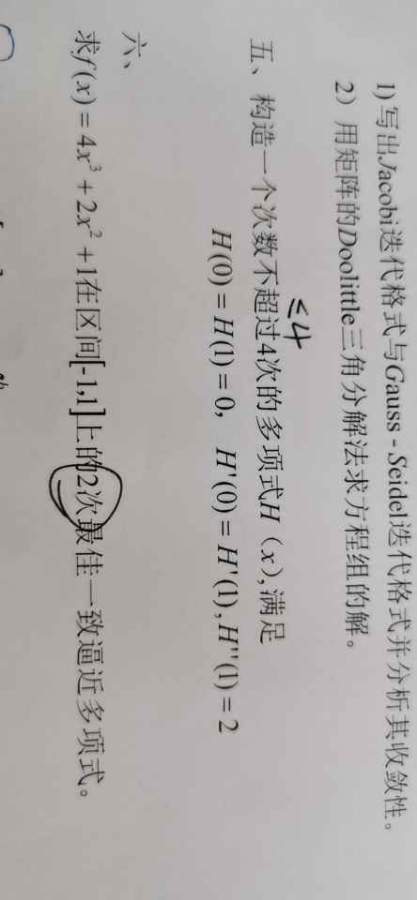 1)写出Jacobi迭代格式与Gauss - Seidel迭代格式并分析其收敛性。
2）用矩阵的Doolittle三角分解法求方程组的解。
≤4
五、构造一个次数不超过4次的多项式H（x）,满足
H(0) = H(1) = 0, H'(0) = H'(1), H''(1) = 2
六、
求f(x) = 4x³ + 2x² + 1在区间[-1,1]上的2次最佳一致逼近多项式。